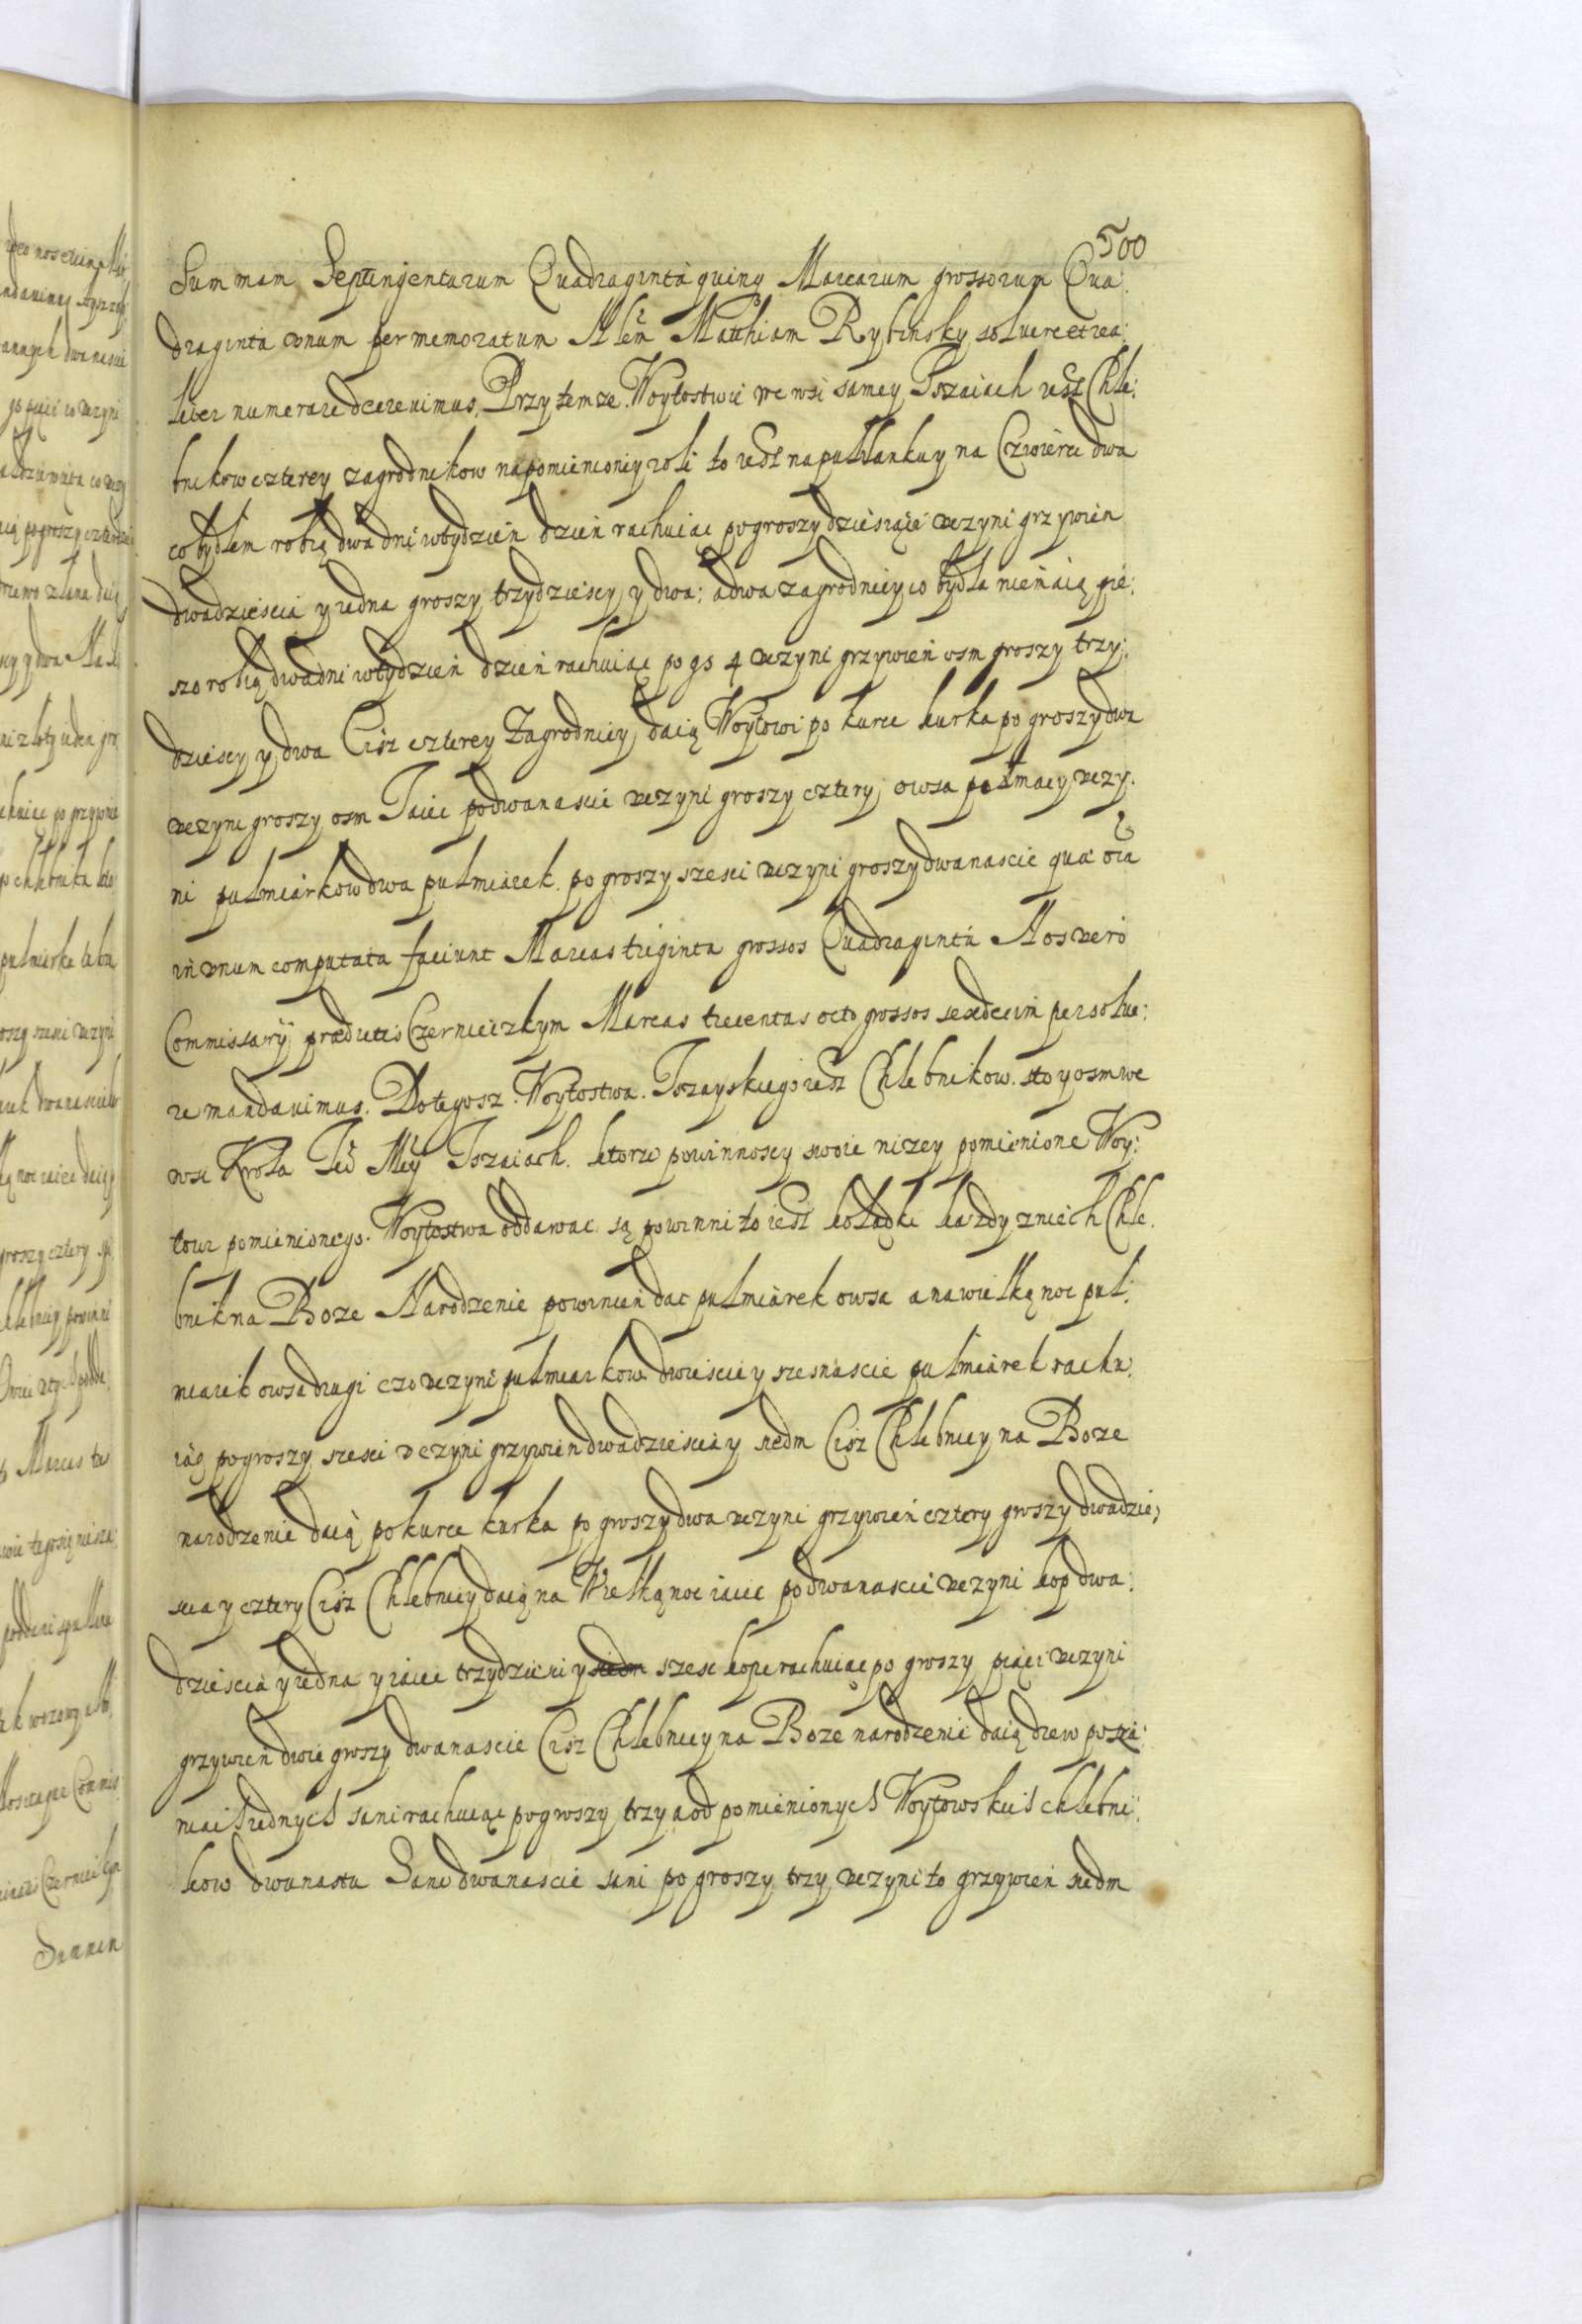 500
Summam Septingenturum Quadraginta quinq Marcarum grossorum Qua:
draginta vnum per memoratum Matthiam Rybinsky soluere et rea:
liter numerare decreuimus. Przy temze Woytostwie we wsi samey Iszaiach iest Chle:
bnikow czterey zagrodnikow na pomienioney roli to iest na pułłanku y na Czwierci dwa
co bydłem robią dwa dni w tydzień dzień rachuiąc po groszy dziesiąći vczyni grzywien
dwadzieścia y iedna groszy trzydziescy y dwa: a dwa zagrodnicy co bydła nie maią pie:
szo robią dwa dni w tydzień dzień rachuiąc po gs 4 vczyni grzywień osm groszy trzy:
dziescy y dwa Ciż czterey Zagrodnicy daią Woytowi po kurce kurka po groszy dwa
vczyni groszy osm Iaiec po dwanascie vczyni groszy cztery owsa po macy vczy:
ni pułmiarkow dwa pułmiarek po groszy szesci vczyni groszy dwanascie quæ oīa
in vnum computata faciunt Marcas triginta grossos Quadraginta Nos vero
Commissarÿ prædictis Czernieiczkym Marcas trecentas octo grossos sexdecim persolue:
re mandauimus. Do tegosz Woytostwa Iszayskiego iest Chlebnikow sto y osm we
wsi Krola Ieo Mci Iszaiach ktorzi powinnoscy swoie nizey pomienione Woy:
towi pomienionego Woytostwa oddawac są powinni to iest kolądki kazdy z niech Chle:
bnik na Boze Narodzenie powinien dac pułmiarek owsa a na wielką noc puł:
miarek owsa drugi czo vczyni pułmiarkow dwiescie y szesnascie pułmiarek rachu:
iąc po groszy szesci vczyni grzywien dwadzieścia y siedm Ciż Chlebnicy na Boze
narodzenie daią po kurce kurka po groszy dwa vczyni grzywień cztery groszy dwadzie;
scia y cztery Ciż Chlebnicy daią na Wielką noc iaiec po dwanascie vczyni kop dwa:
dziescia y iedna y iaiec trzydziesci y siedm szesc kope rachuiąc po groszy piąci vczyni
grzywień dwie groszy dwanascie Ciż Chlebnicy na Boze narodzenie daią drew po
iednych sani rachuiąc po groszy trzy a od pomienionych Woytowskich chlebni:
kow dwunastu Sani dwanascie sani po groszy trzy vczyni to grzywień siedm